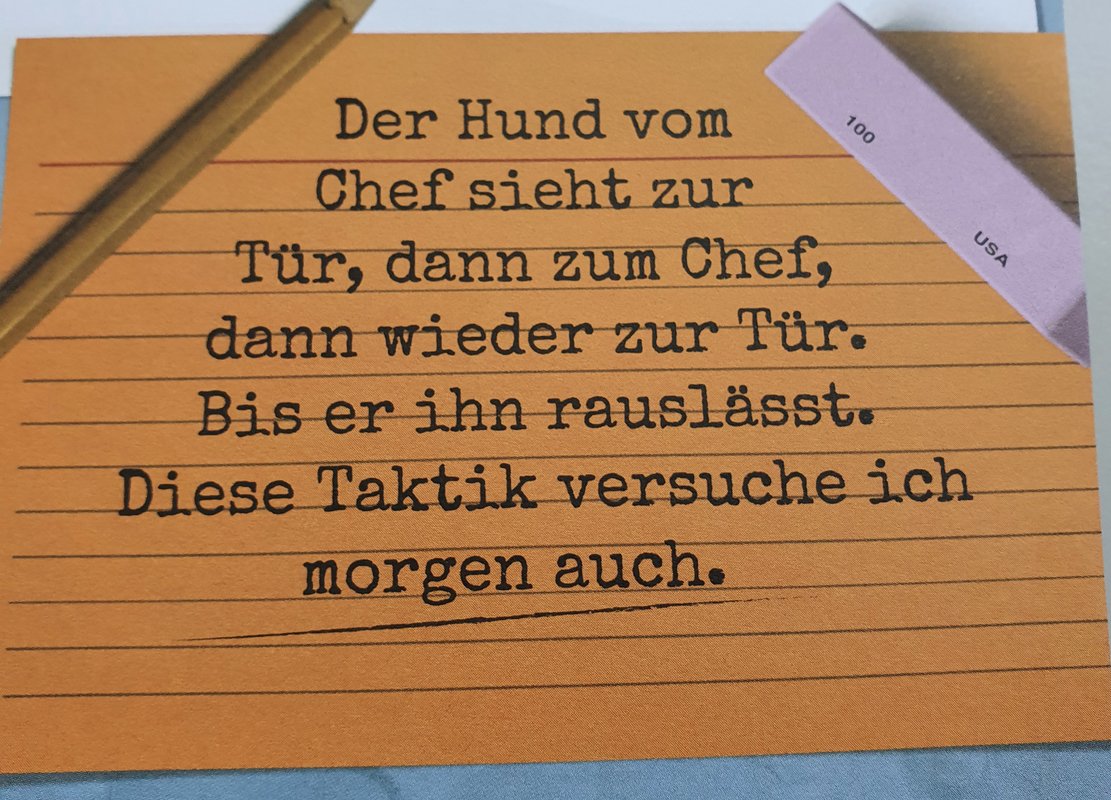 Der Hund vom
Chef sieht zur
Tür, dann zum Chef,
dann wieder zur Tür.
Bis er ihn rauslässt.
Diese Taktik versuche ich
morgen auch.
100
USA